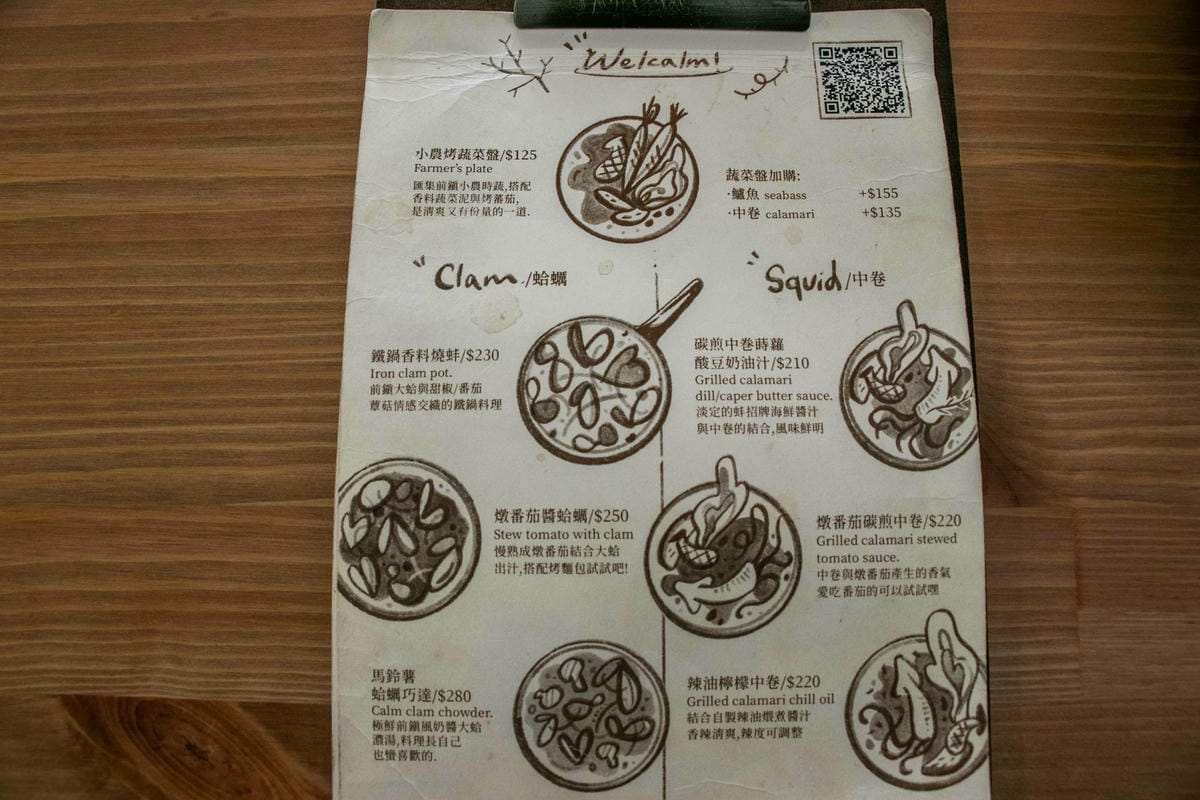 Welcalm!
小農烤蔬菜盤/$125
Farmer's plate
匯集前鎮小農時蔬,搭配
香料蔬菜泥與烤蕃茄,
是清爽又有份量的一道.
蔬菜盤加購:
·鱸魚 seabass +$155
·中卷 calamari +$135
Clam/蛤蠣
鐵鍋香料燒蚌/$230
Iron clam pot.
前鎮大蛤與甜椒/番茄
蕈菇情感交織的鐵鍋料理
燉番茄醬蛤蠣/$250
Stew tomato with clam
慢熟成燉番茄結合大蛤
出汁,搭配烤麵包試試吧!
馬鈴薯
蛤蠣巧達/$280
Calm clam chowder.
極鮮前鎮風奶醬大蛤
濃湯,料理長自己
也蠻喜歡的.
Squid/中卷
碳煎中卷蒔蘿
酸豆奶油汁/$210
Grilled calamari
dill/caper butter sauce.
淡定的蚌招牌海鮮醬汁
與中卷的結合,風味鮮明
燉番茄碳煎中卷/$220
Grilled calamari stewed
tomato sauce.
中卷與燉番茄產生的香氣
愛吃番茄的可以試試哩
辣油檸檬中卷/$220
Grilled calamari chill oil
結合自製辣油煨煮醬汁
香辣清爽,辣度可調整